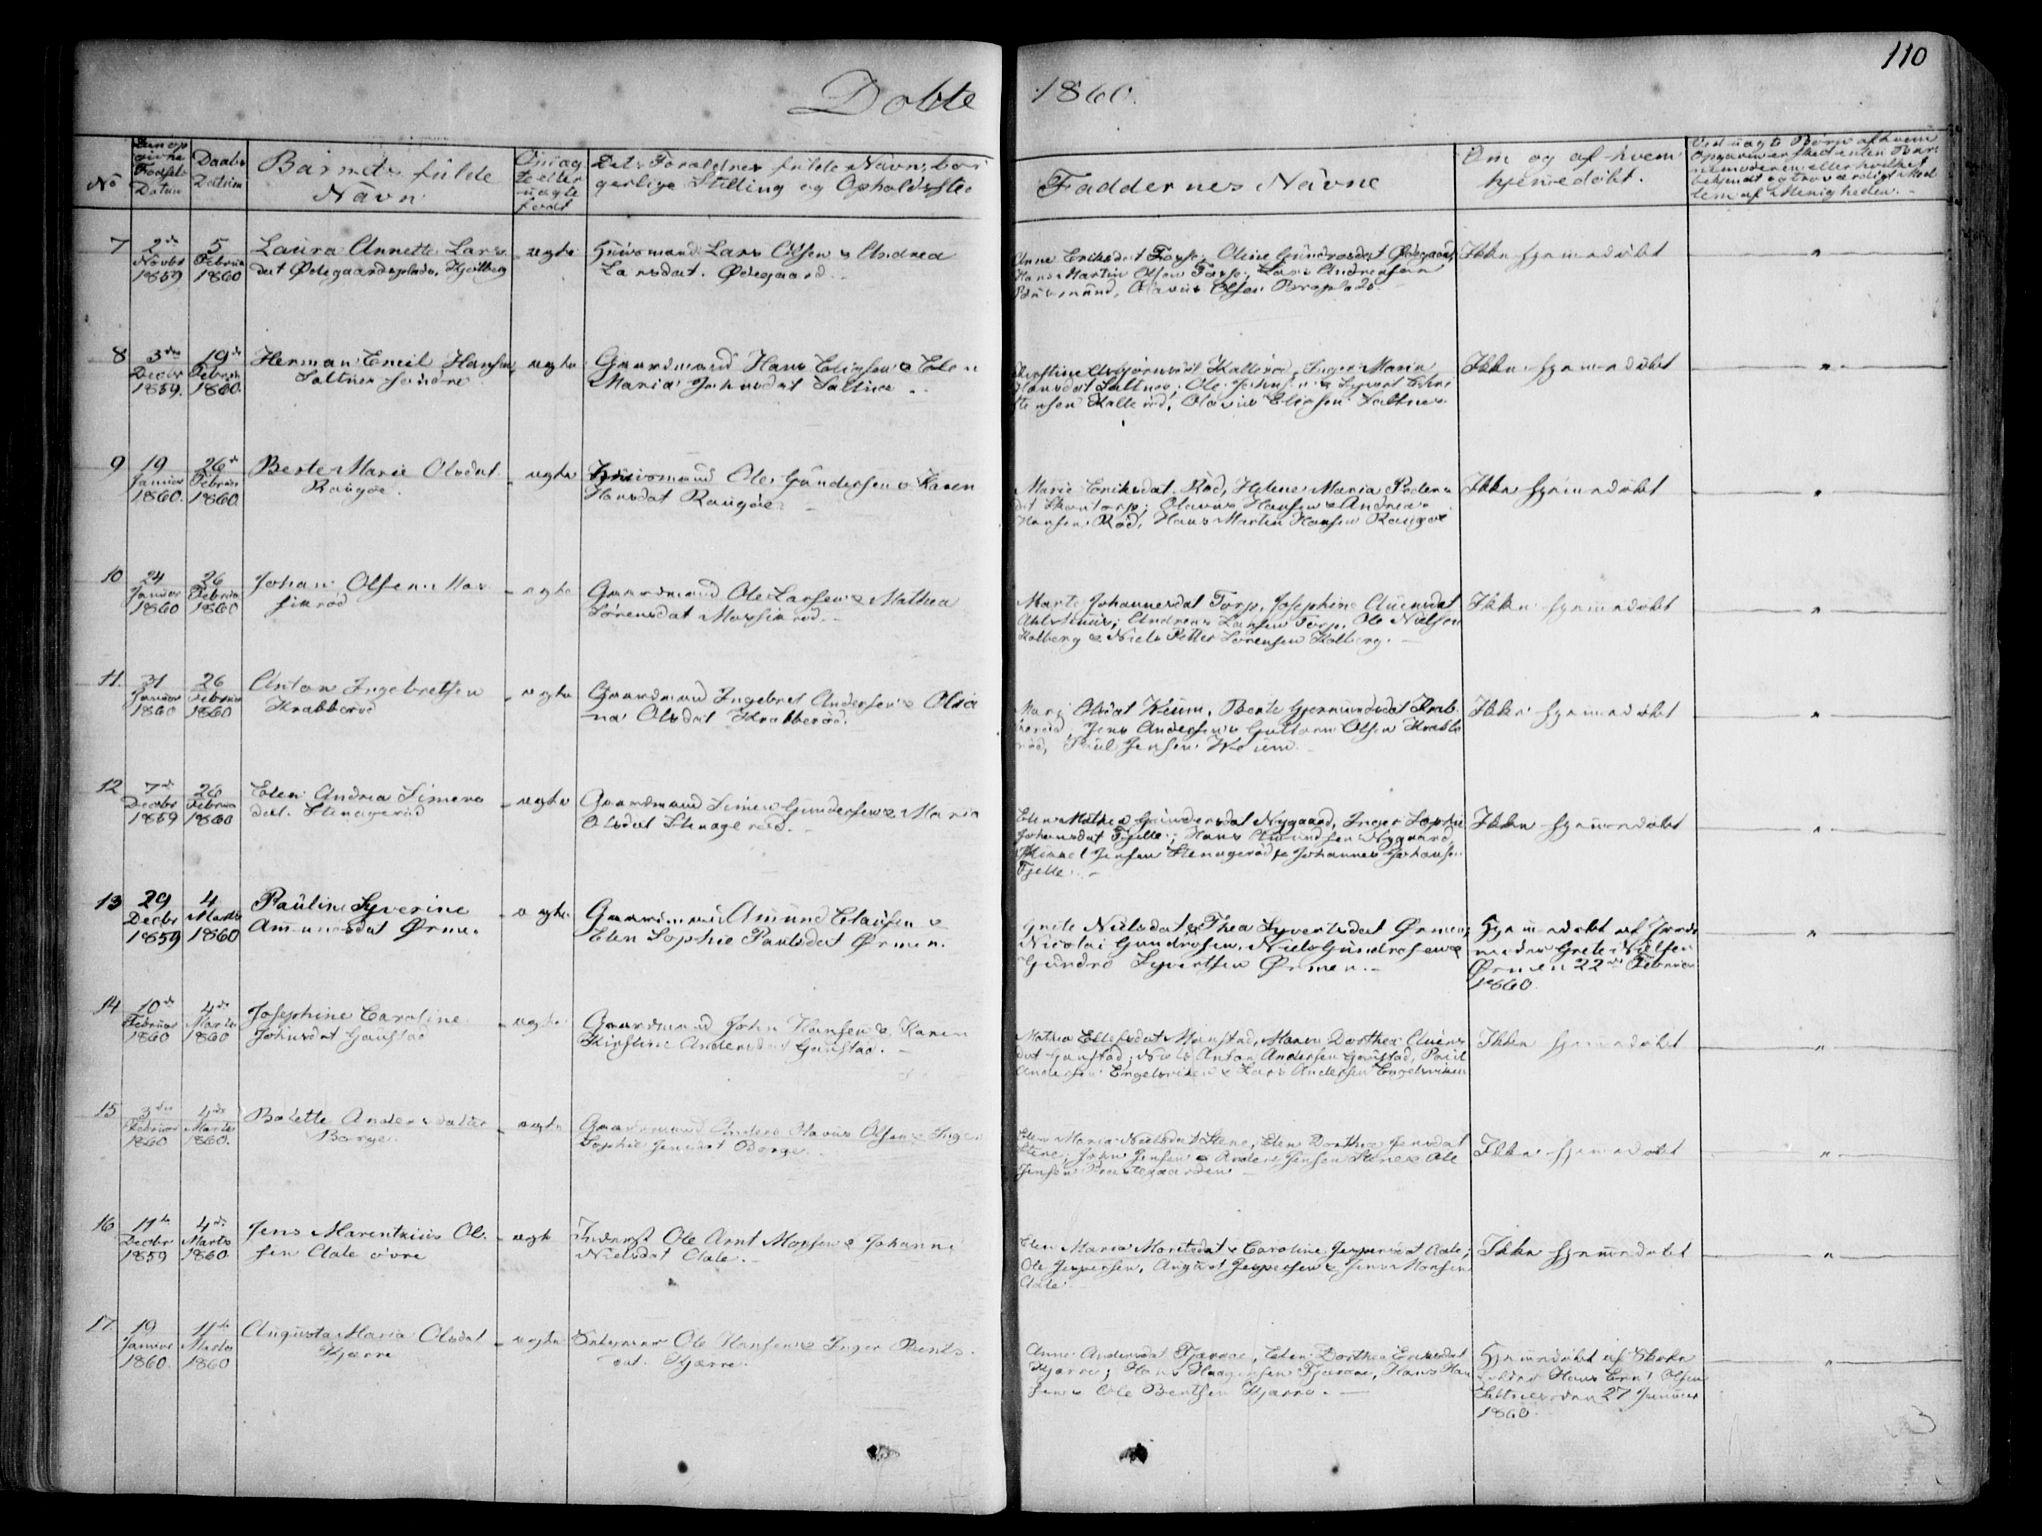 110
Døbte 1860.
No
Daabs
Datum
Barnets fulde
Navn
Det Forældres fulde Navn, bor
gerlige Stilling og Opholdssted
Faddernes Navne
Om og af hvem
hjemedøbt.
7
2de
Novbr
1859
5
Februar
1860
Laura Annette Lars
dat Ødegaardsplads, Kjølberg
ægte
Huusmand Lars Olsen & Andrea
Larsdat. Ødegaard.
Anne Eriksdat Torp, Oline Gundrosdat Ødegaard,
Hans Martin Olsen Torp, Lars Andreasen
Olavus Olsen Broplads.
Ikke hjemmedøbt
"
8
3die
Decbr
1859.
19de
Februar
1860.
Herman Emil Hansen
Saltnes søndre
ægte
Gaardmand Hans Eliasen & Elen
Maria Johnsdat Saltnes
Kirstine Asbjørnsdat Kallerød, Inger Maria
Hansdat Saltnes; Ole Johnsen & Syvert Chri
stensen Kallerød, Olavus Eliasen Saltnes.
Ikke hjemmedøbt
"
9
19
Januar
1860.
26de
Februar
1860.
Berte Marie Olsdat.
Raugøe.
ægte
Huusmand Ole Gundersen & Karen
Hansdat Raugøe
Marie Eriksdat. Rød, Helene Maria Peders
dat Skontorp; Olavus Hansen & Andreas
Hansen Rød, Hans Martin Hansen Raugøe
Ikke hjemmedøbt
"
10
24
Januar
1860
26
Februar
1860
Johan Olsen Mos
sikrød
ægte
Gaardmand Ole Larsen & Mathea
Sørensdat Mossikrød.
Marte Johannesdat Torp, Josephine Auensdat
Andreas Larsen Torp, Ole Nielsen
Kolberg & Niels Petter Sørensen Kolberg.
Ikke hjemmedøbt
"
11.
31
Januar
1860
26
Februar
1860
Anton Ingebretsen
Krabberød
ægte
Gaardmand Ingebret Andersen & Olia
na Olsdat Krabberød.
Mari Olsdat Weum, Berte Gjermundsdat Krab
berød, Jens Andersen & Guttorm Olsen Krabbe
rød, Paul Jensen Weum.
Ikke hjemmedøbt
"
12
7de
Decbr
1859
26
Februar
1860
Elen Andrea Simens
dat. Stenagerød
ægte
Gaardmand Simen Gundersen & Maria
Olsdat Stenagerød.
Elen Mathea Gundersdat Nygaard, Inger Sophie
Johansdat Fjelle; Hans Amundsen Nygaard,
Jensen Stenagerød & Johannes Johansen
Fjelle.
Ikke hjemmedøbt
"
13
29
Decbr
1859
4
Marts
1860
Pauline Syverine
Amundsdat Ørmen.
ægte
Gaardmand Amund Clausen &
Elen Sophie Paulsdat Ørmen.
Grete Nielsdat & Thea Syvertsdat Ørmen;
Nicolai Gundrosen, Niels Gundrosen &
Gundro Syvertsen Ørmen.
Hjemmedøbt af Jorde
moder Grete Nielsen
Ørmen 22de Februar
1860.
"
14
10de
Februar
1860
4de
Marts
1860
Josephine Caroline
Johnsdat Gaustad
ægte
Gaardmand John Hansen & Karen
Kirstine Andersdat Gaustad.
Mathea Ellefsdat Manstad, Maren Dorthea Auens
dat Gaustad; Niels Anton Andersen Gaustad, Paul
Andersen Engelsviken & Lars Andersen Engelsviken
Ikke hjemmedøbt
"
15
3die
Februar
1860
4de
Marts
1860.
Bolette Andersdatter
Borge.
ægte
Gaardmand Anders Olavus Olsen & Inger
Sophie Jensdat Borge.
Elen Maria Nielsdat Stene, Elen Dorthea Jensdat
Stene; John Jensen & Anders Jensen Stene & Ole
Jensen Præstegaarden
Ikke hjemmedøbt
"
16
11te
Decbr
1859
4de
Marts
1860
Jens Marentzius Ol
sen Aale øvre
ægte
Inderst Ole Arnt Monsen & Johanne
Nielsdat Aale.
Elen Maria Monsdat & Caroline Jespersdat Aale;
Ole Jespersen, August Jespersen & Jens Monsen
Aale.
Ikke hjemmedøbt
"
17.
19
Januar
1860.
11te
Marts
1860
Augusta Maria Olsdat
Kjærre
ægte
Ole Hansen & Inger Bents
dat. Kjærre.
Anne Andersdat Tjæraae, Elen Dorthea Eriksdat
Kjærre; Hans Haagensen Tjæraae, Hans Han
sen & Ole Bentsen Kjærre.
Hjemmedøbt af Skole
holder Hans Ernt Olsen
Saltnes den 27 Januar
1860.
"